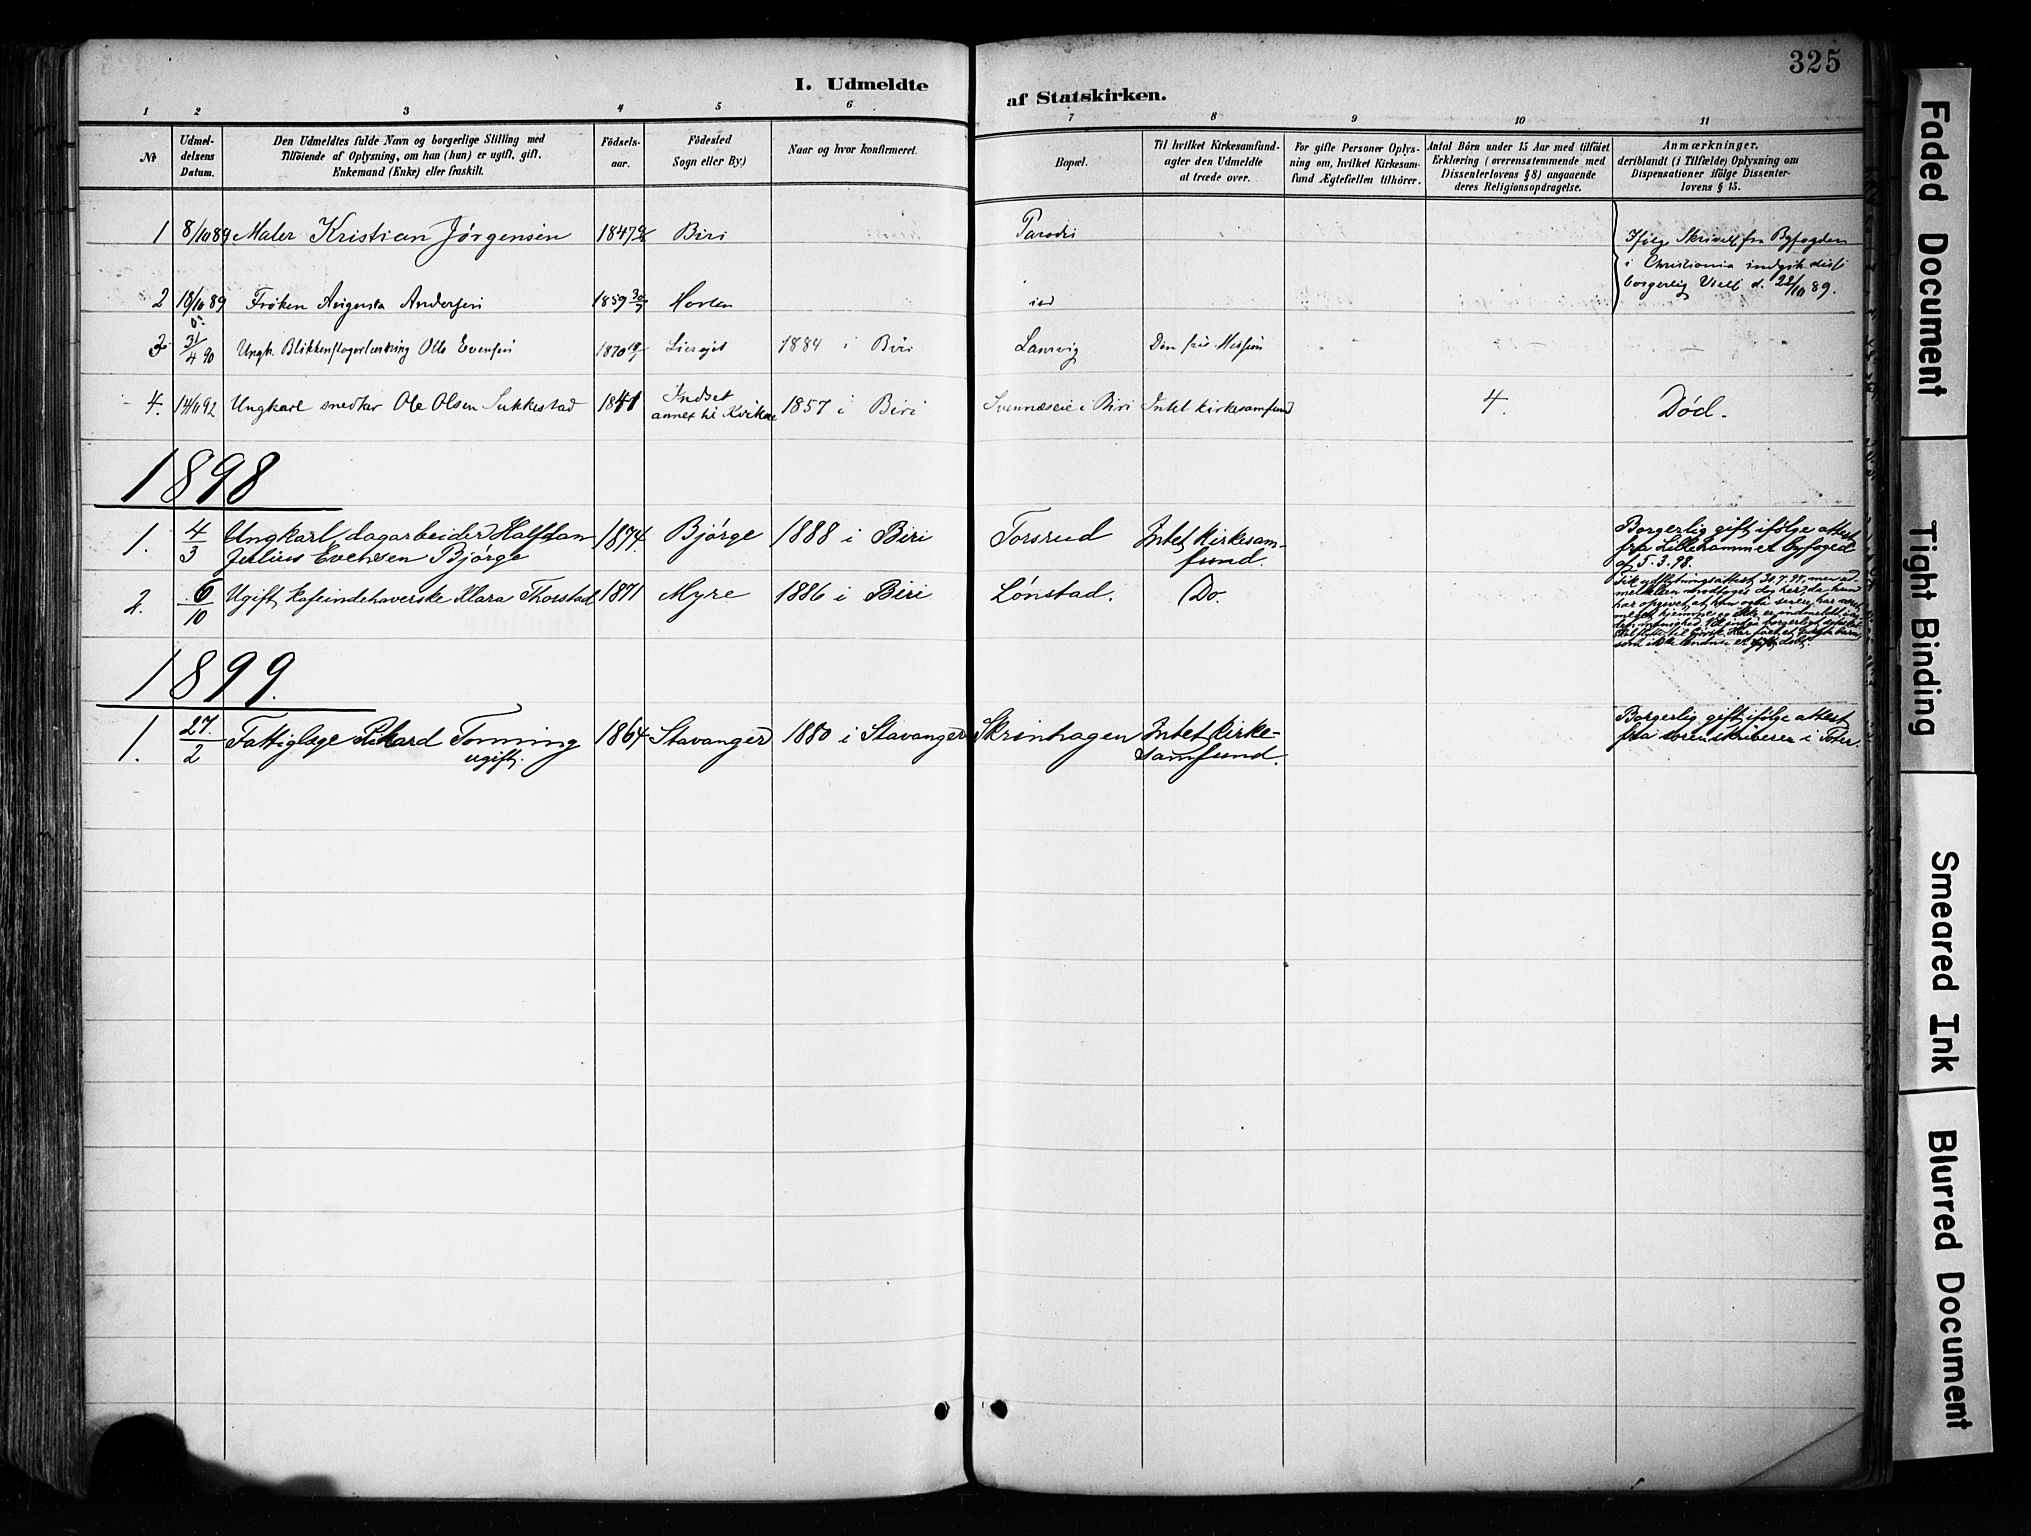 325
I. Udmeldte af Statskirken.
1 2 3 4 5 6 7 8 9 10 11
Nr
Udmel-
delsens
Datum.
Den Udmeldtes fulde Navn og borgerlige Stilling med
Tilføiende af Oplysning, om han (hun) er ugift, gift.
Enkemand (Enke) eller fraskilt.
Fødsels-
aar.
Fødested
Sogn eller By)
Naar og hvor konfirmeret.
Bopæl.
Til hvilket Kirkesamfund-
agter den Udmeldte
at træde over.
For gifte Personer Oplys-
ning om, hvilket Kirkesam-
fund Ægtefællen tilhører.
Antal Börn under 15 Aar med tilføiet
Erklæring (overensstemmende med
Dissenterlovens § 8) angaaende
deres Religionsopdragelse.
Anmærkninger,
deriblandt (i Tilfælde) Oplysning om
Dispensationer ifølge Dissenter-
lovens § 15.
1 8/10 89 Maler Kristian Jörgensen 1847 Biri
Ifølge Skrivelse fra Byfogden
i Christiania indgik disse
borgerlig Vielse d. 22/10 89.
2 18/10 89 Frøken Augusta Andersen 1859 Horten
3 Ungk. Blikkenslagerlærling Olle Evensen 1870 1884 i Biri Laurvig Den frie Mission
4. 14/11 92 Ungkarl snedker Ole Olsen Sukkestad 1841 Indset
annex til Kvikne 1857 i Biri Svennæseie i Biri Intet kirkesamfund 4. Død.
1898
1. 4/3 Ungkarl, dagarbeider Halfdan
Julius Evensen Bjørge 1874. Bjørge 1888 i Biri Torsrud Intet Kirkesam-
fund.
Borgerlig gift ifølge attest
fra Lillehammer byfoged
af 5.3.98.
2. 6/10 Ugift kafeindehaverske Klara Thorstad 1871 Myre 1886 i Biri Lønstad. Do.
1899.
1. 27/2 Fattiglæge Rikard Tonning
ugift. 1864 Stavanger 1880 i Stavanger Skrinhagen Intet Kirke-
samfund.
Borgerlig gift ifølge attest
fra sorenskriveren i Toten.
Faded Document
Tight Binding
Smeared Ink
Blurred Document